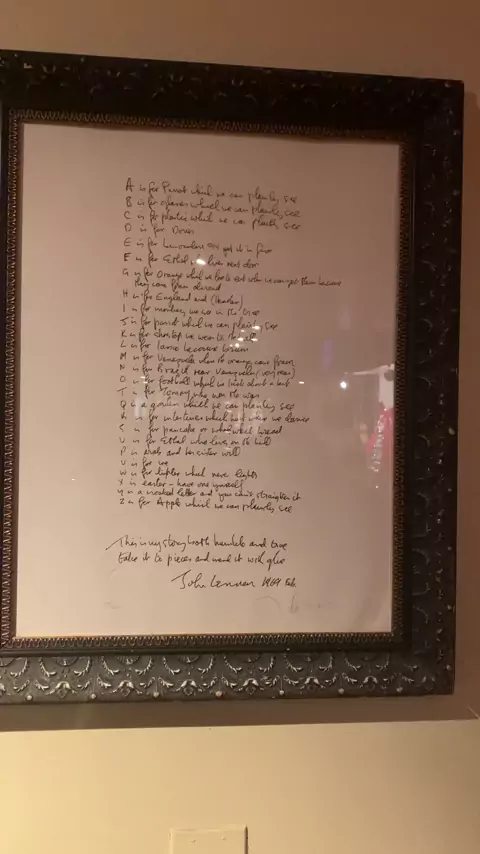 A is for Parrot which we can plainly see
B is for glasses which we can plainly see
C is for plastic which we can plainly see
D is for Doris
E is for binoculars I'll get it in five
F is for Ethel who lives next door
G is for Orange which we love to eat when we can get them because
they come from abroad
H is for England and (Heather)
I is for monkey we see in the tree
J is for parrot which we can plainly see
K is for shoetop we wear to the ball
L is for because brown
M is for Venezuela where the oranges come from
N is for Brazil near Venezuela (very near)
O is for football which we kick about a bit
T is for Tommy who won the war
Q is a garden which we can plainly see
R is for intestines which hurt when we dance
S is for pancake or whole wheat bread
U is for Ethel who lives on the hill
P is arab and her sister will
V is for me
W is for lighter which never lights
X is easter – have one yourself
Y is a crooked letter and you can't straighten it
Z is for Apple which we can plainly see
This is my story both humble and true
take it to pieces and mend it with glue
John Lennon 1969 Feb